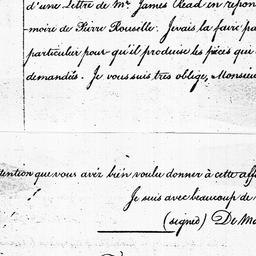 d'une Lettre de Mr. James Read en repon
-moire de Pierre Rouselle. Jevais la faire pa
particulier pour qu'il produise les pièces qui
demandées. Je vous suis très obligé, Monsieu
tention que vous avéz bién voulu donner à cette aff
Je suis avec beaucoup de
(signed) De Ma